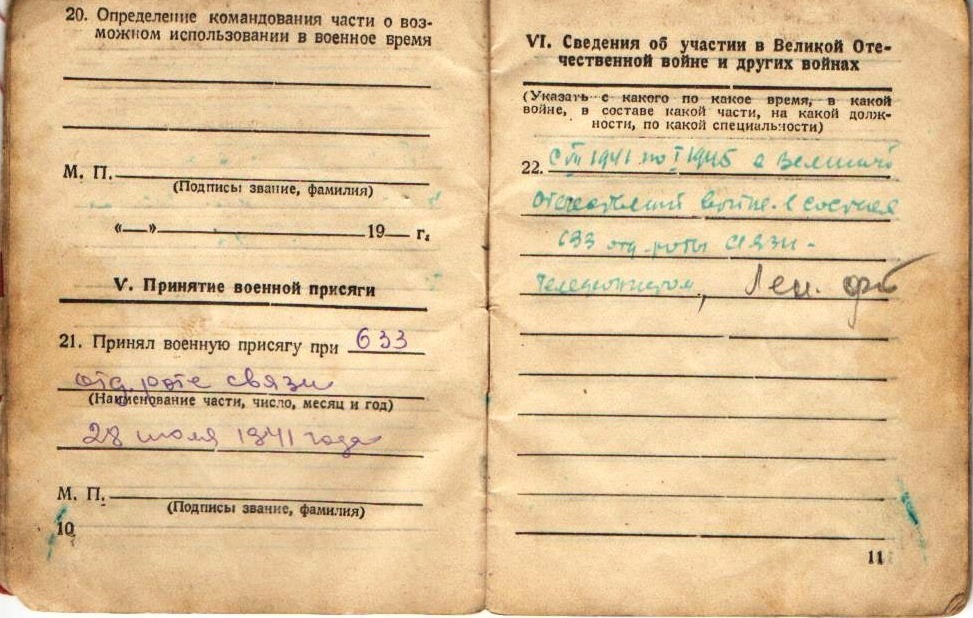 20. Определение командования части о воз-
можном использовании в военное время
М. П.
(Подписы звание, фамилия)
«—» 19— г.
V. Принятие военной присяги
21. Принял военную присягу при 633
отд. роте связи
(Наименование части, число, месяц и год)
28 июля 1941 года
М. П.
(Подписы звание, фамилия)
10
VI. Сведения об участии в Великой Оте-
чественной войне и других войнах
(Указать с какого по какое время, в какой
войне, в составе какой части, на какой долж-
ности, по какой специальности)
22. С 1941 по 1945 в Великой
отечественной войне в составе
633 отд. роты связи -
телефонистом, Лен. фр
11